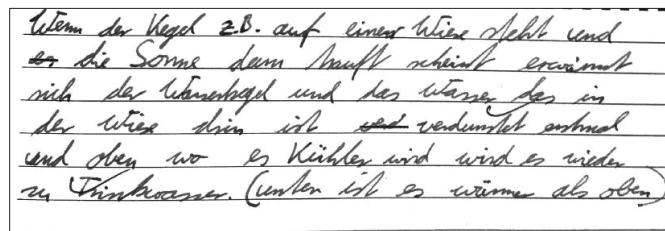 Wenn der Kegel z.B. auf einer Wiese steht und
die Sonne dann drauft scheint erwärmt
sich der Wasserkegel und das Wasser das in
der Wiese drin ist verdunstet erstmal
und oben wo es Kühler wird wird es wieder
zu Trinkwasser. (unten ist es wärmer als oben)